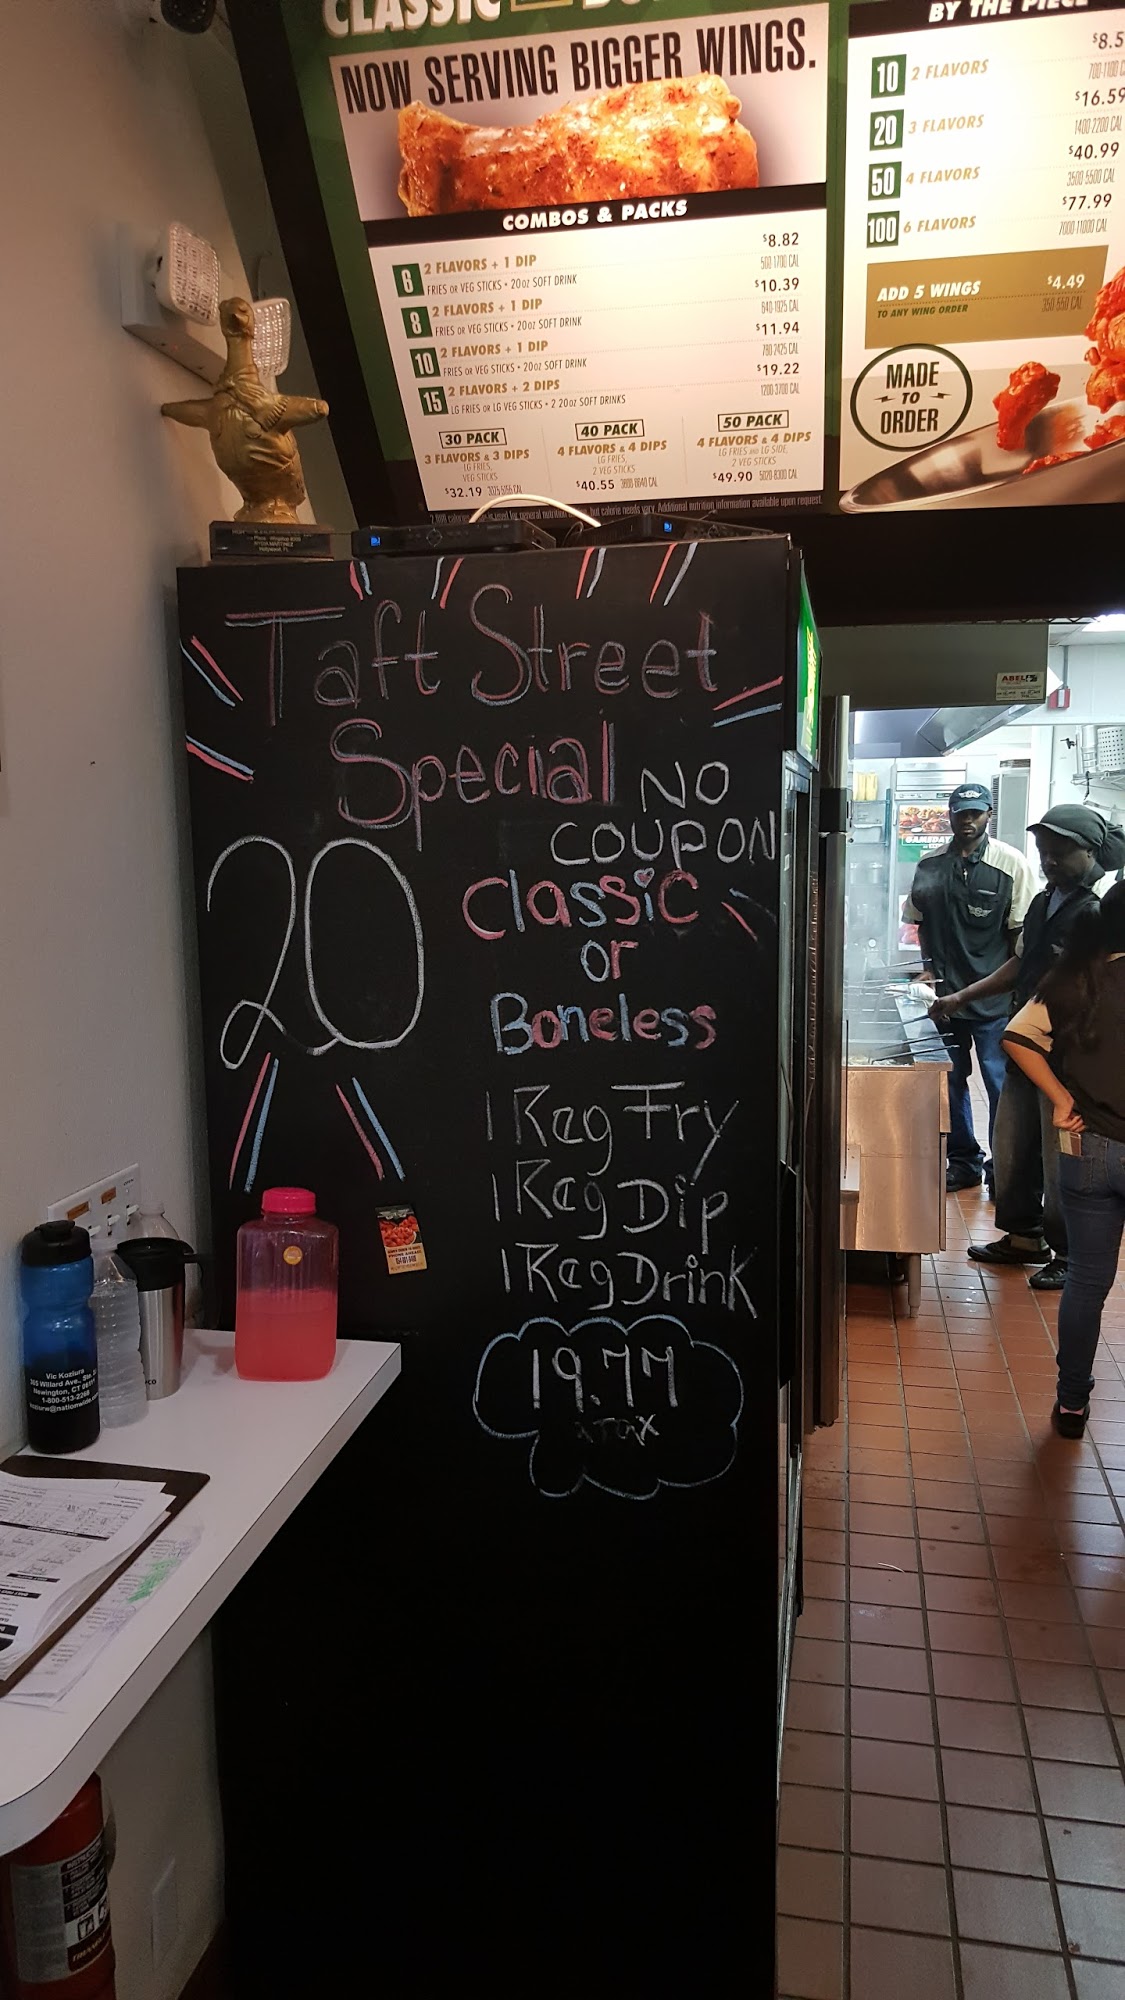 CLASSIC
NOW SERVING BIGGER WINGS.
COMBOS & PACKS
6 2 FLAVORS + 1 DIP $8.82
FRIES OR VEG STICKS • 20oz SOFT DRINK
8 2 FLAVORS + 1 DIP $10.39
FRIES OR VEG STICKS • 20oz SOFT DRINK
10 2 FLAVORS + 1 DIP $11.94
FRIES OR VEG STICKS • 20oz SOFT DRINK
15 2 FLAVORS + 2 DIPS $19.22
LG FRIES OR LG VEG STICKS • 2 20oz SOFT DRINKS
30 PACK
3 FLAVORS & 3 DIPS
LG FRIES,
VEG STICKS
$32.19
40 PACK
4 FLAVORS & 4 DIPS
LG FRIES,
2 VEG STICKS
$40.55
50 PACK
4 FLAVORS & 4 DIPS
LG FRIES AND LG SIDE,
2 VEG STICKS
$49.90
Additional nutrition information available upon request.
BY THE PIECE
10 2 FLAVORS $8.5
20 3 FLAVORS $16.59
1400 2200 CAL
50 4 FLAVORS $40.99
3500 5500 CAL
100 6 FLAVORS $77.99
7000 11000 CAL
ADD 5 WINGS $4.49
TO ANY WING ORDER 350 550 CAL
MADE
TO
ORDER
Taft Street
Special
NO
COUPON
20
Classic
or
Boneless
1 Reg Fry
1 Reg Dip
1 Reg Drink
19.77
+Tax
ABEL
Vic Koziura
Newington, CT
1-800-513-2268